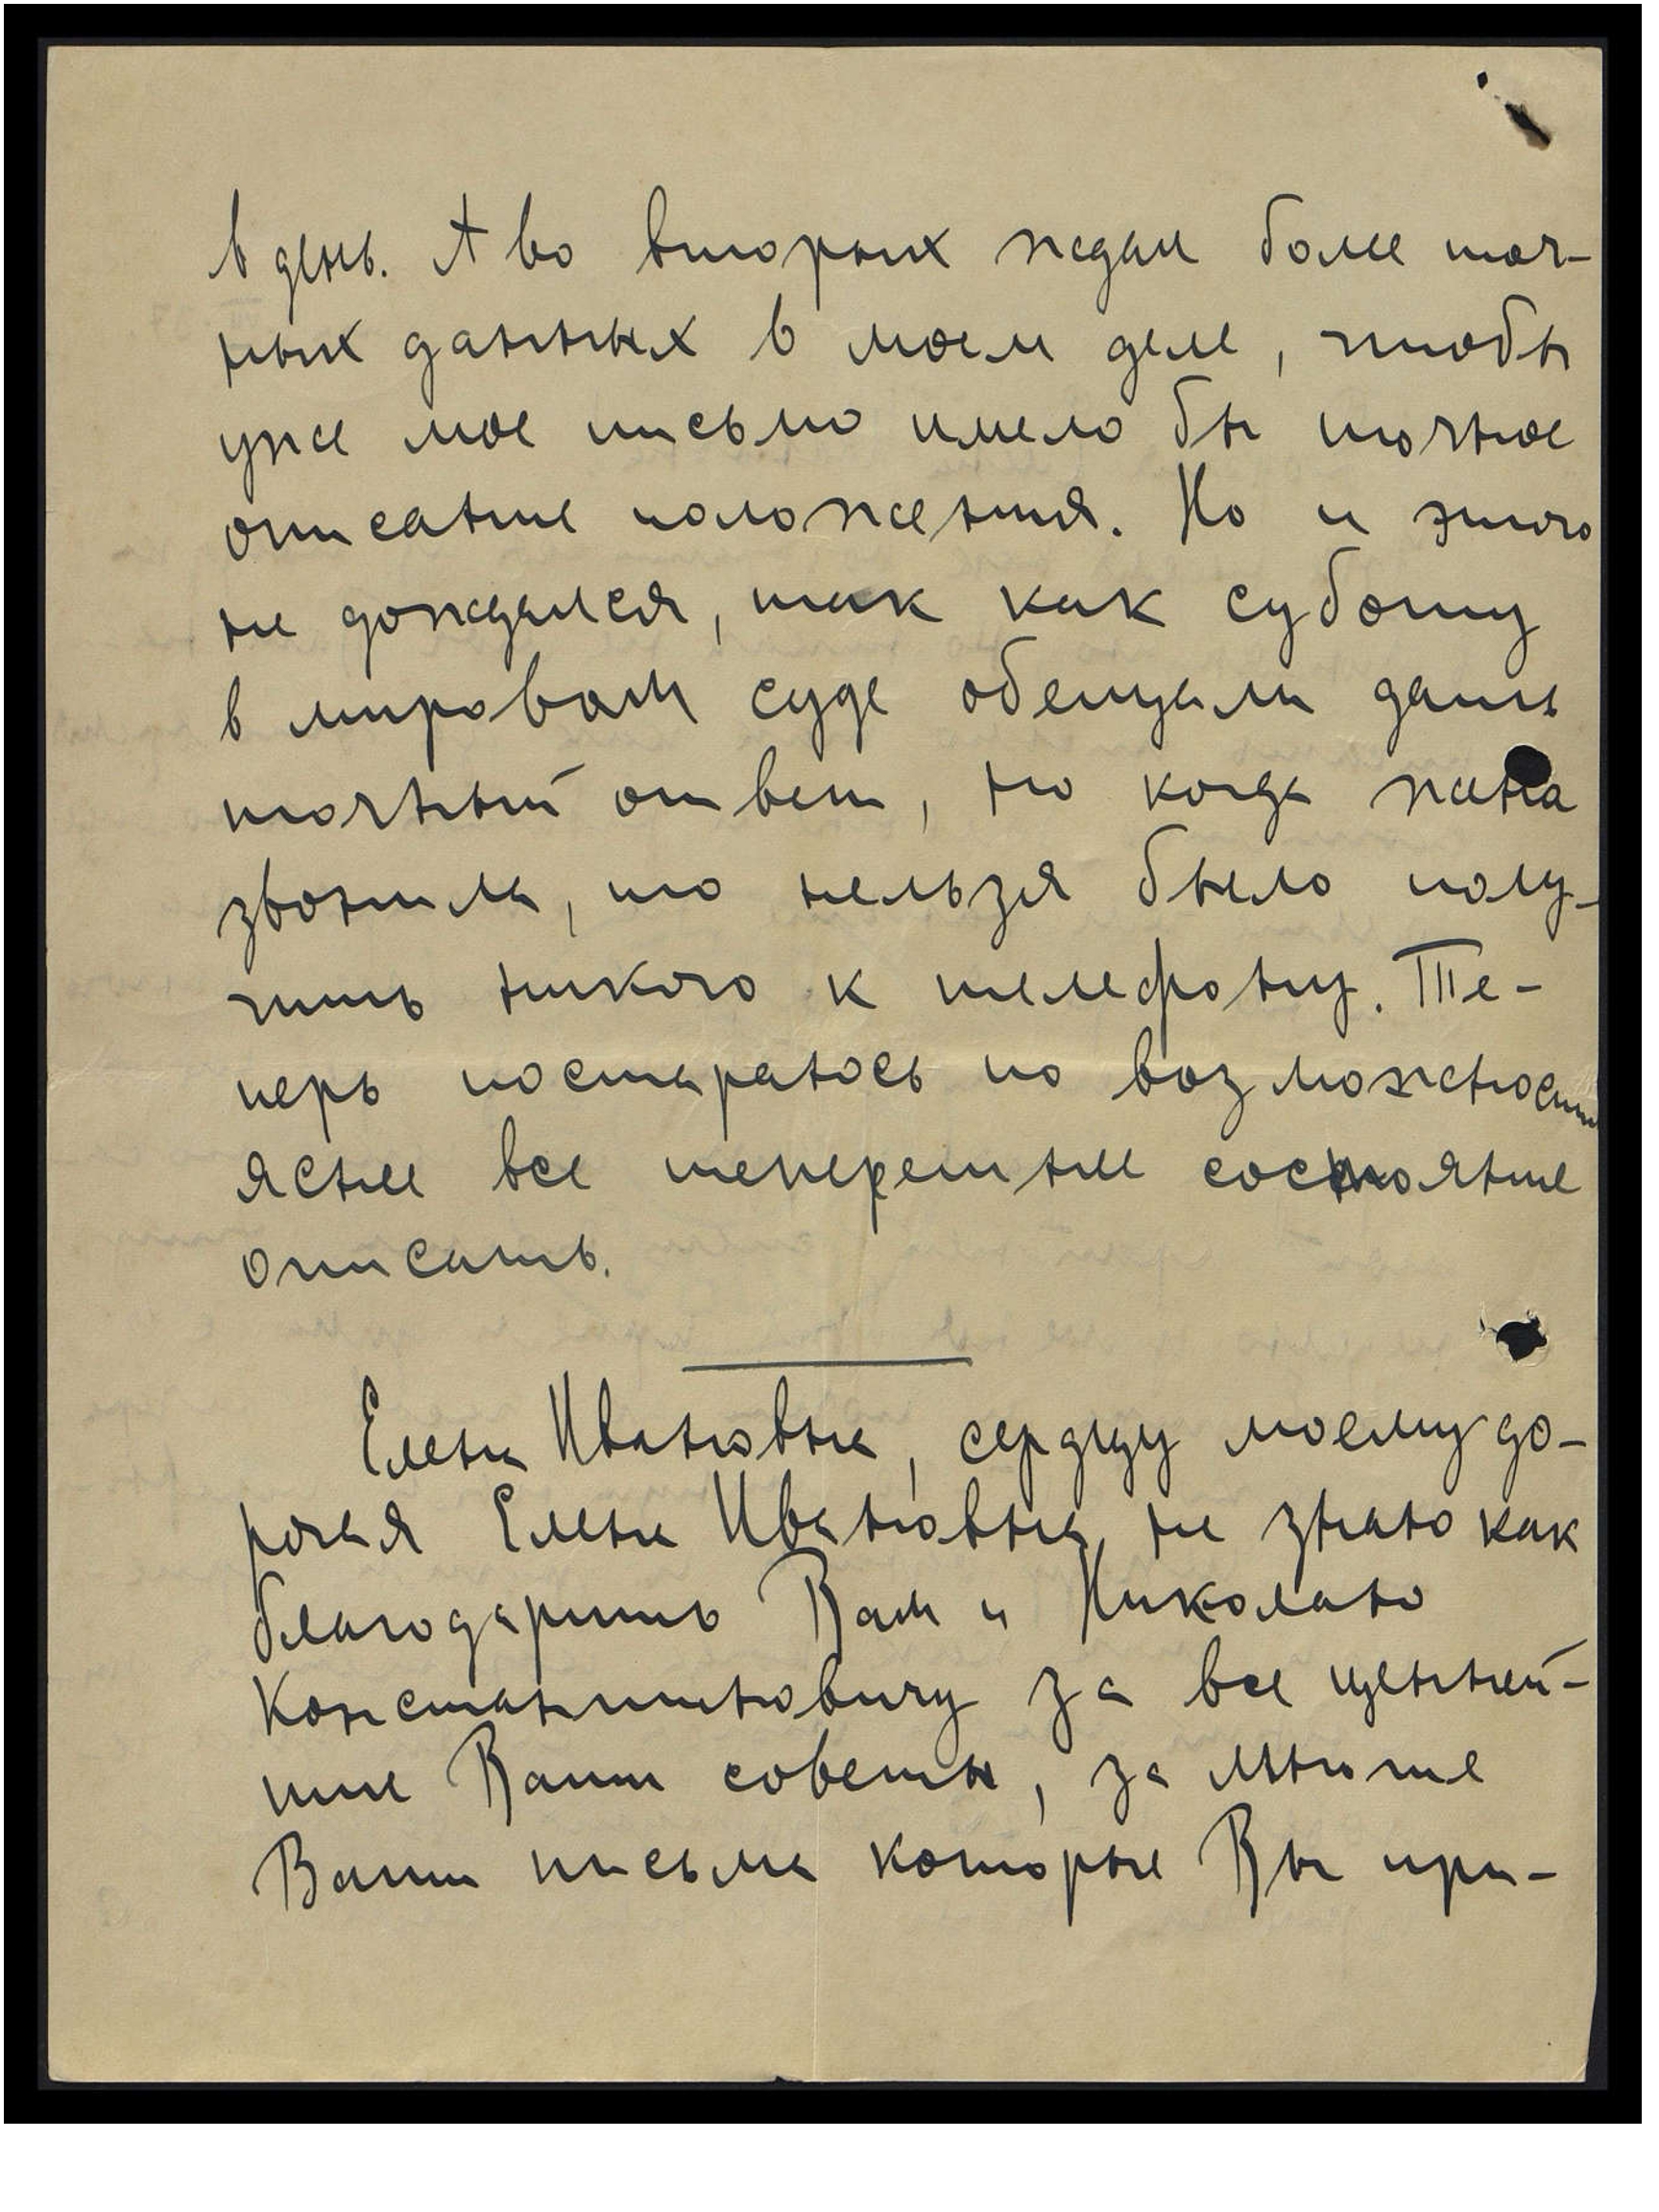 в день. А во вторых ждал более точ-
ных данных в моем деле, чтобы
уже мое письмо имело бы точное
описание положения. Но и этого
не дождался, так как субботу
в мировом суде обещали дать
точный ответ, но когда жена
звонила, то нельзя было полу-
чить никого к телефону. Те-
перь постараюсь по возможности
яснее все теперешнее состояние
описать.
Елена Ивановна, сердцу моему до-
рогая Елена Ивановна, не знаю как
благодарить Вам и Николаю
Константиновичу за все ценней-
шие Ваши советы, за многие
Ваши письма которые Вы при-